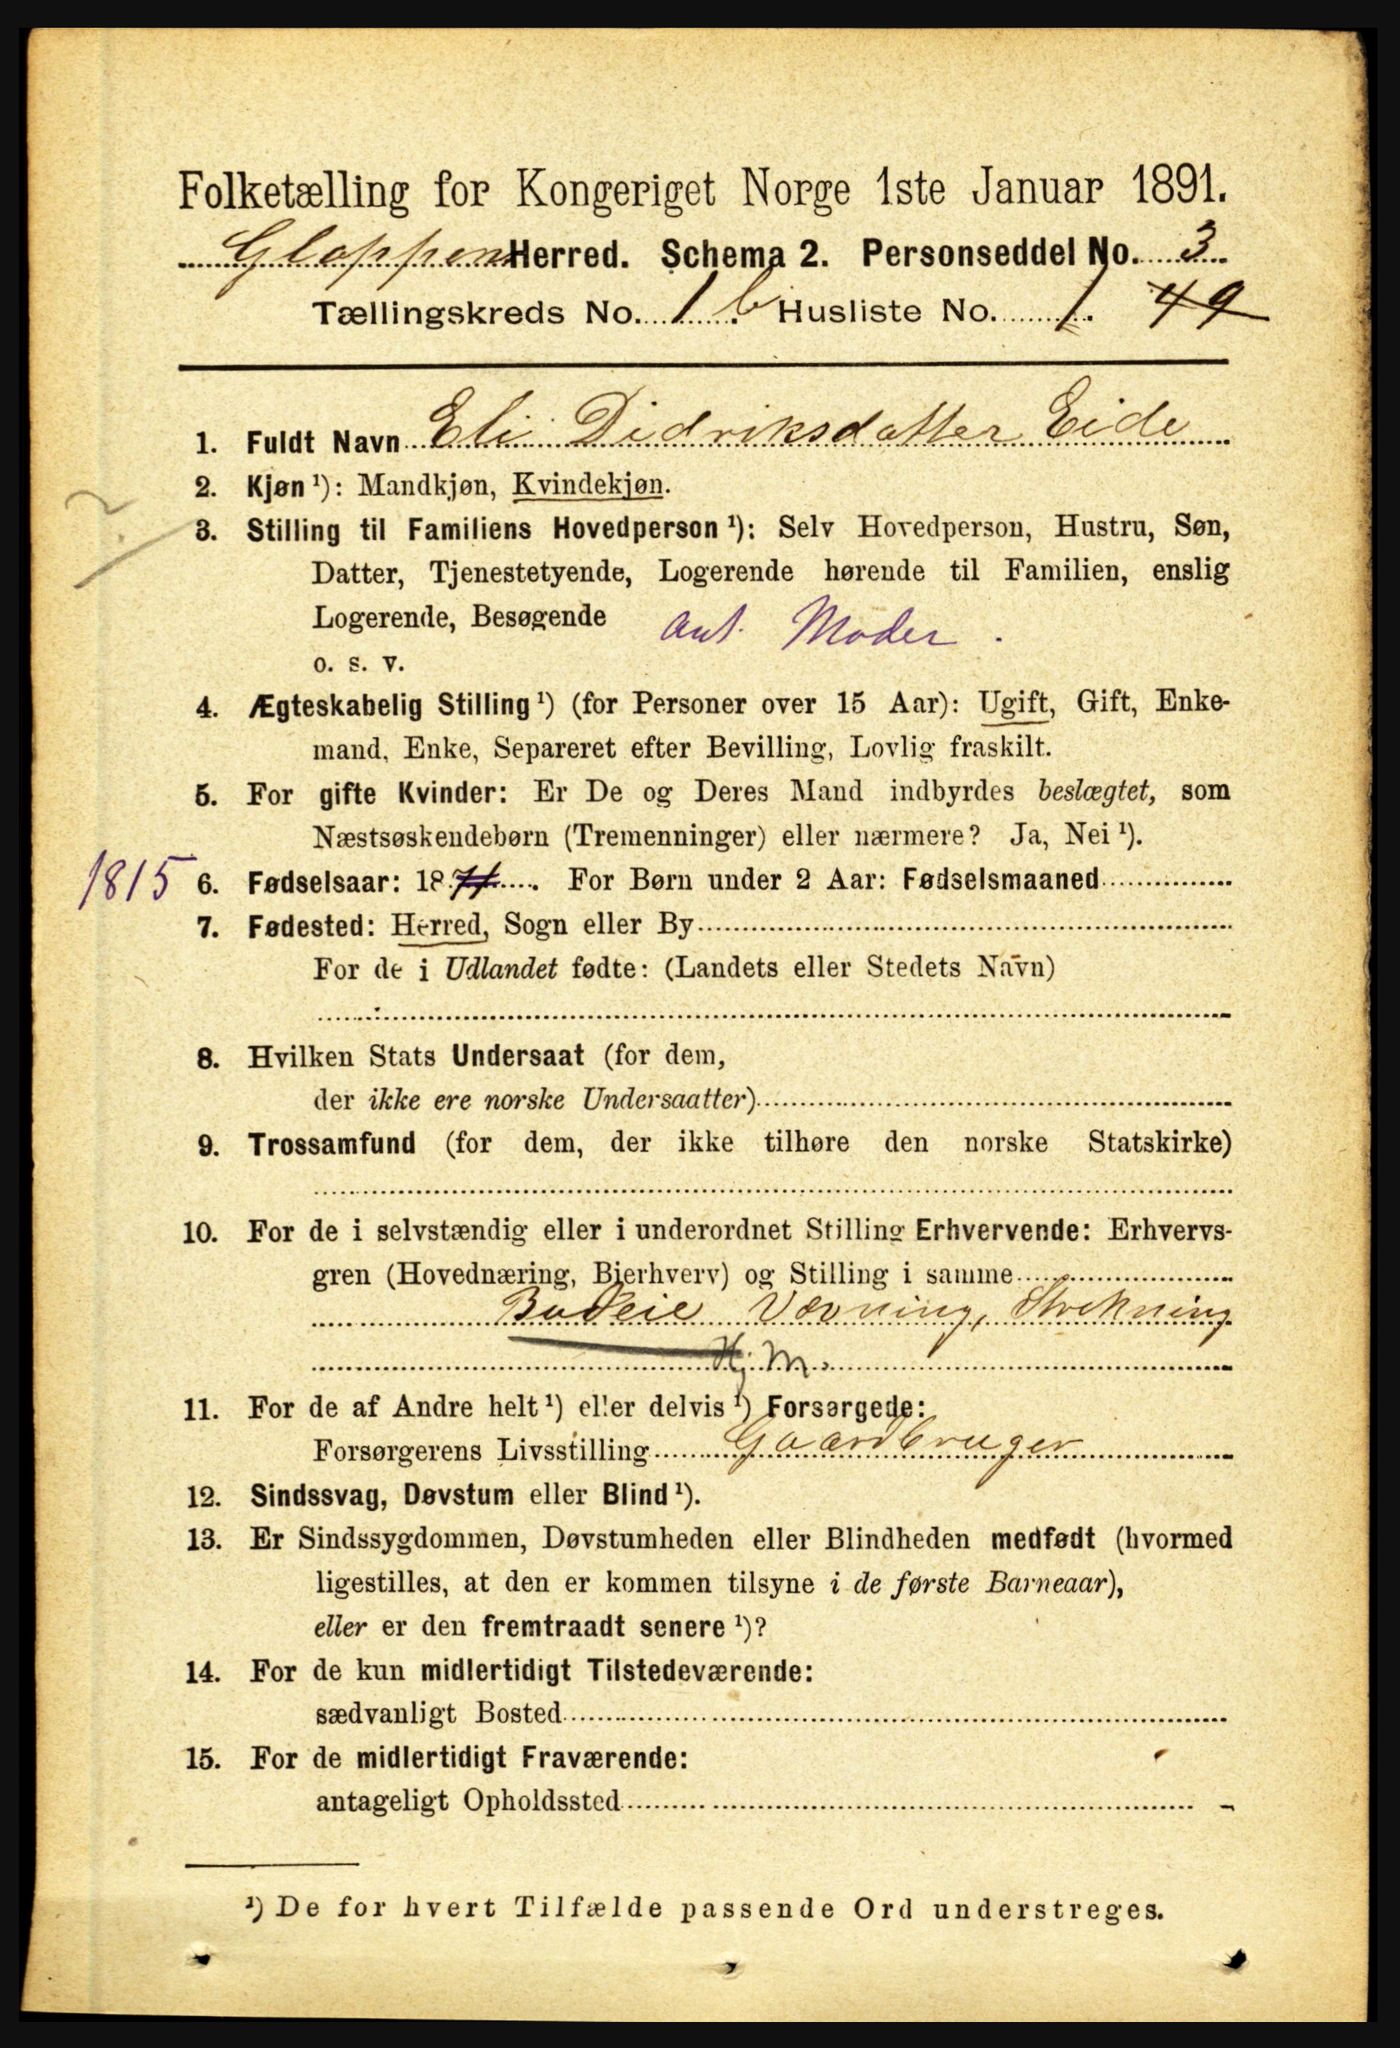 Folketælling for Kongeriget Norge 1ste Januar 1891.
Gloppens Herred. Schema 2. Personseddel No. 3
Tællingskreds No. 1 b Husliste No. 1. 49
1. Fuldt Navn Eli Didriksdatter Eide
2. Kjøn ¹): Mandkjøn, Kvindekjøn.
3. Stilling til Familiens Hovedperson ¹): Selv Hovedperson, Hustru, Søn,
Datter, Tjenestetyende, Logerende hørende til Familien, enslig
Logerende, Besøgende ant. Moder.
o. s. v.
4. Ægteskabelig Stilling ¹) (for Personer over 15 Aar): Ugift, Gift, Enke-
mand, Enke, Separeret efter Bevilling, Lovlig fraskilt.
5. For gifte Kvinder: Er De og Deres Mand indbyrdes beslægtet, som
Næstsøskendebørn (Tremenninger) eller nærmere? Ja, Nei ¹).
1815 6. Fødselsaar: 18 . For Børn under 2 Aar: Fødselsmaaned
7. Fødested: Herred, Sogn eller By
For de i Udlandet fødte: (Landets eller Stedets Navn)
8. Hvilken Stats Undersaat (for dem,
der ikke ere norske Undersaatter)
9. Trossamfund (for dem, der ikke tilhøre den norske Statskirke)
10. For de i selvstændig eller i underordnet Stilling Erhvervende: Erhvervs-
gren (Hovednæring, Bierhverv) og Stilling i samme
Budeie Vævning, Strikning
Hj. M.
11. For de af Andre helt ¹) eller delvis ¹) Forsørgede:
Forsørgerens Livsstilling Gaardbruger
12. Sindssvag, Døvstum eller Blind ¹).
13. Er Sindssygdommen, Døvstumheden eller Blindheden medfødt (hvormed
ligestilles, at den er kommen tilsyne i de første Barneaar),
eller er den fremtraadt senere ¹)?
14. For de kun midlertidigt Tilstedeværende:
sædvanligt Bosted
15. For de midlertidigt Fraværende:
antageligt Opholdssted
¹) De for hvert Tilfælde passende Ord understreges.